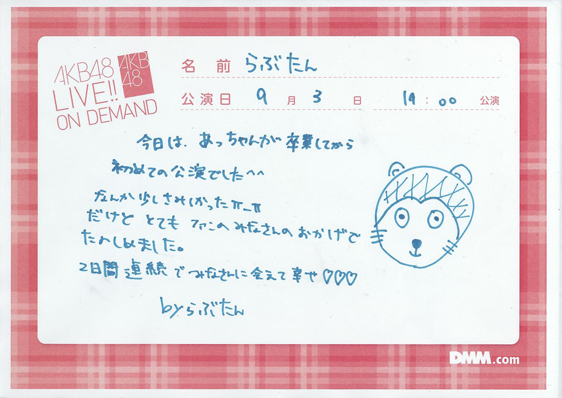 AKB48
LIVE!!
ON DEMAND
AKB
48
名前 らぶたん
公演日 9月3日 19:00 公演
今日は、あっちゃんが卒業してから
初めての公演でした^^
なんか少しさみしかったπ_π
だけど とても ファンのみなさんのおかげで
たのしめました。
2日間連続でみなさんに会えて幸せ♡♡♡
byらぶたん
DMM.com